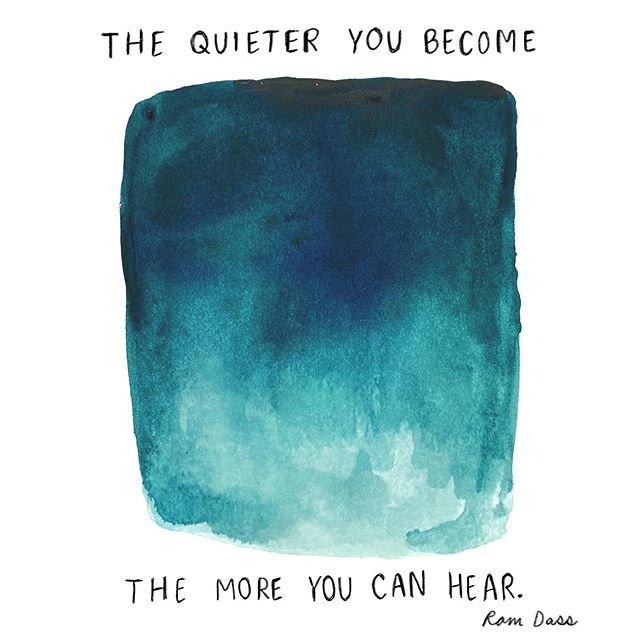 THE QUIETER YOU BECOME
THE MORE YOU CAN HEAR.
Ram Dass